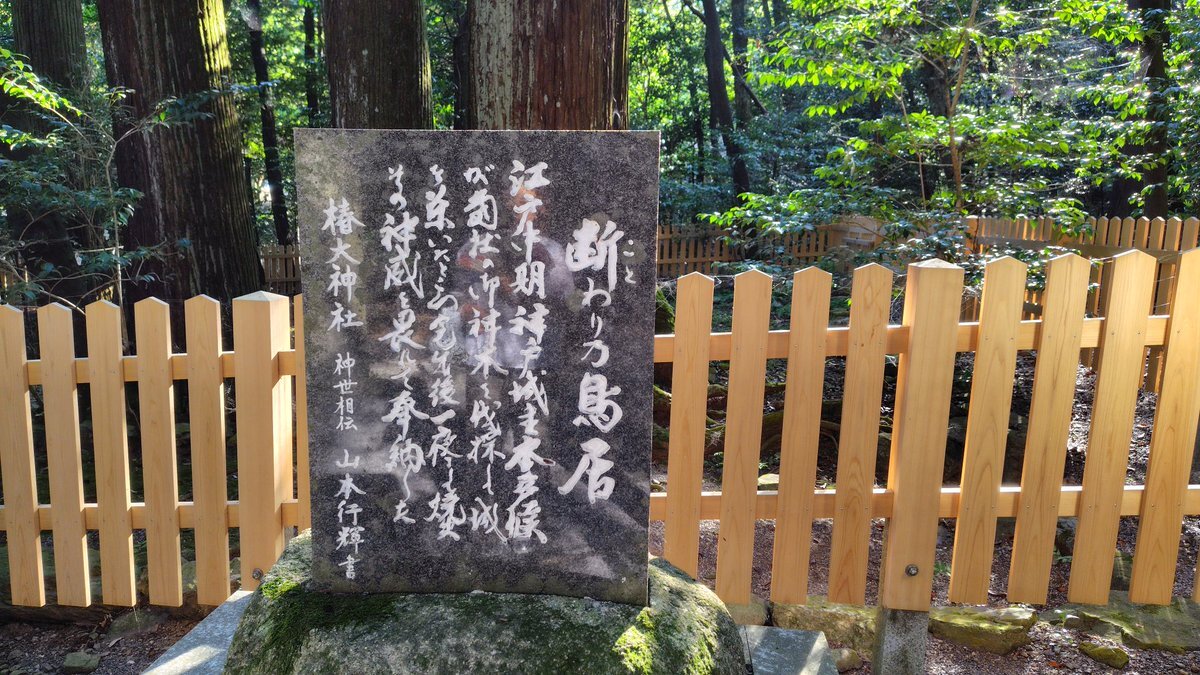 断わり乃鳥居
こと
江戸中期神戸城主本多候
が當社の御神木を伐採し城
を築いたところ完成後一夜で焼失
その神威を畏れて奉納した
椿大神社 神世相伝 山本行輝書